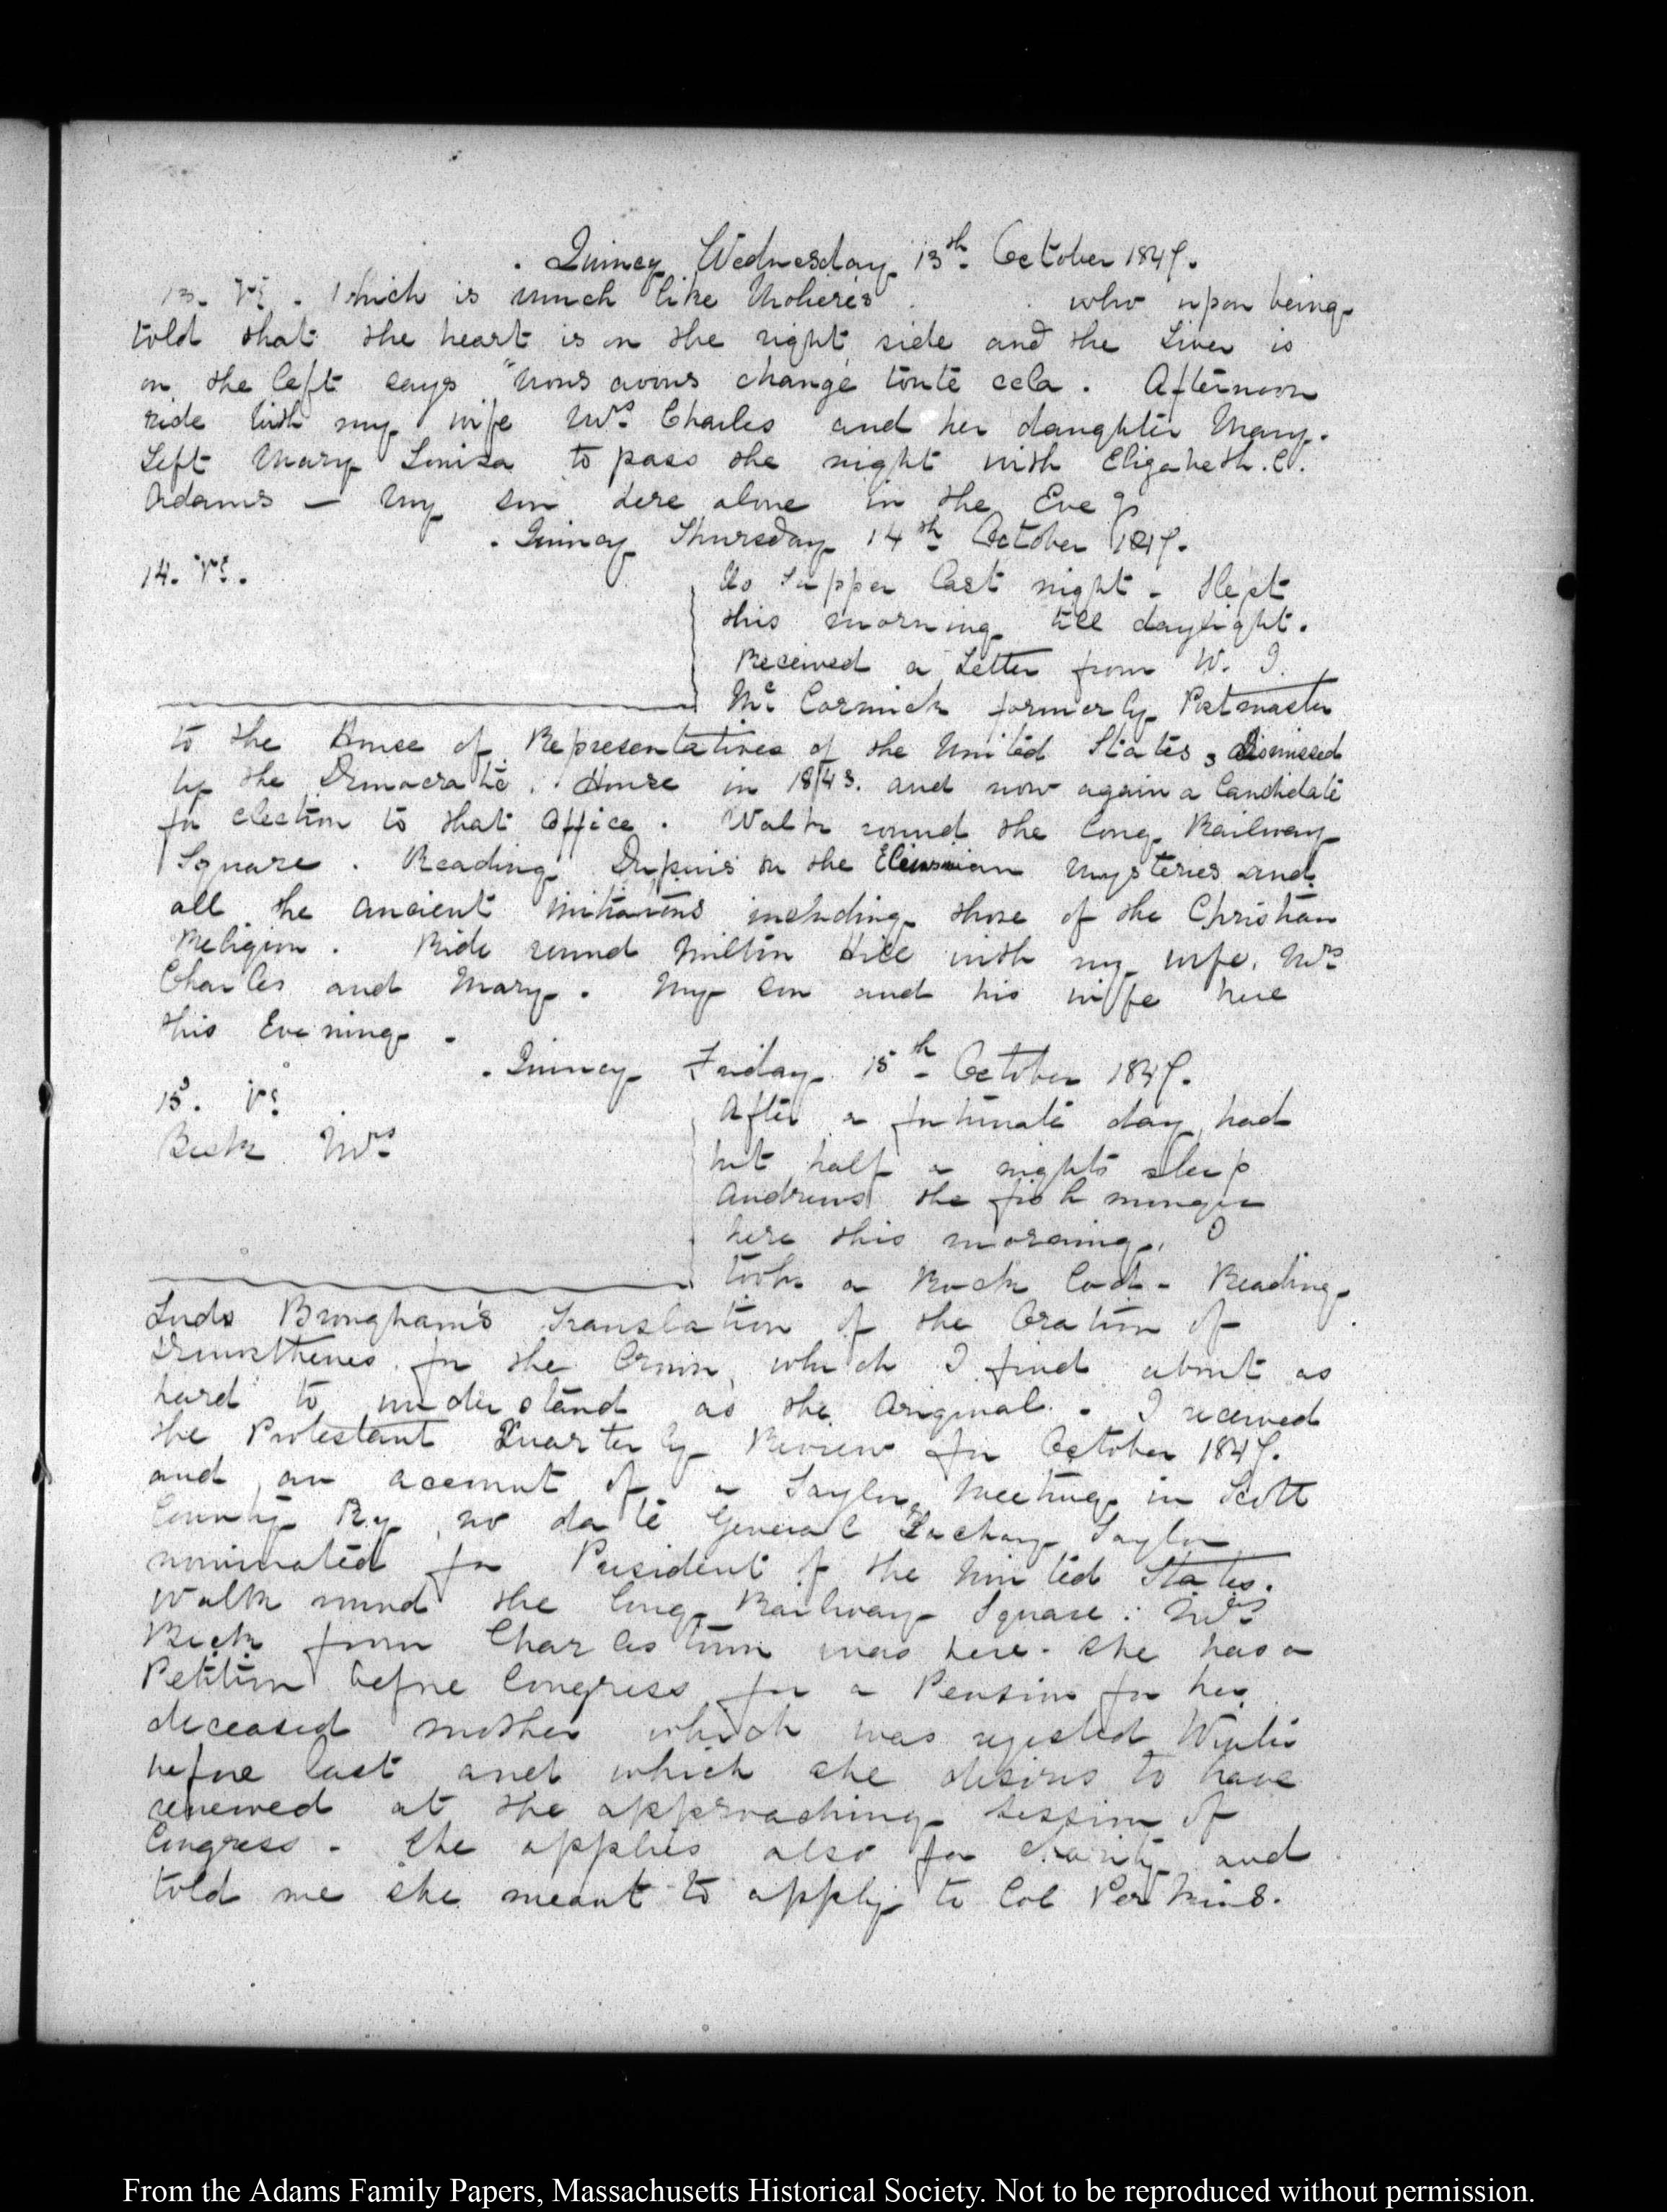 . Quincy Wednesday 13th October 1847.
13. V: . Which is much like Moliere's who upon being
told that the heart is on the right side and the Liver is
on the left says "nous avons changé toute cela. Afternoon
ride with my wife Mrs Charles and her daughter Mary.
Left Mary Louisa to pass the night with Elizabeth. C.
Adams — My son here alone in the Eveg
. Quincy Thursday 14th October 1847.
14. V: .
No Supper last night - Slept
this morning till daylight.
Received a Letter from W. J.
Mc Cormick formerly Postmaster
to the House of Representatives of the United States, dismissed
by the Democratic House in 1843. and now again a Candidate
for election to that Office. Walk round the long Railway
Square. Reading Dupuis on the Eleusinian Mysteries and
all the ancient initiations including those of the Christian
Religion. Ride round Milton Hill with my wife, Mrs
Charles and Mary. My son and his wife here
this Evening.
. Quincy Friday 15th October 1847.
15. V:
Beck Mrs
After a fortunate day, had
but half a nights sleep
Andrews the fish monger
here this morning, I
took a Rock Cod - Reading
Lords Brougham's Translation of the Oration of
Demosthenes for the Crown, which I find about as
hard to understand as the Original. I received
the Protestant Quarterly Review for October 1847.
and an account of a Taylor Meeting in Scott
County Ky, no date General Zachary Taylor
nominated for President of the United States.
Walk round the long Railway Square: Mrs
Beck from Charlestown was here. She has a
Petition before Congress for a Pension for her
deceased mother which was rejected Winter
before last and which she desires to have
renewed at the approaching session of
Congress - She applies also for charity and
told me she meant to apply to Col Perkins.
From the Adams Family Papers, Massachusetts Historical Society. Not to be reproduced without permission.